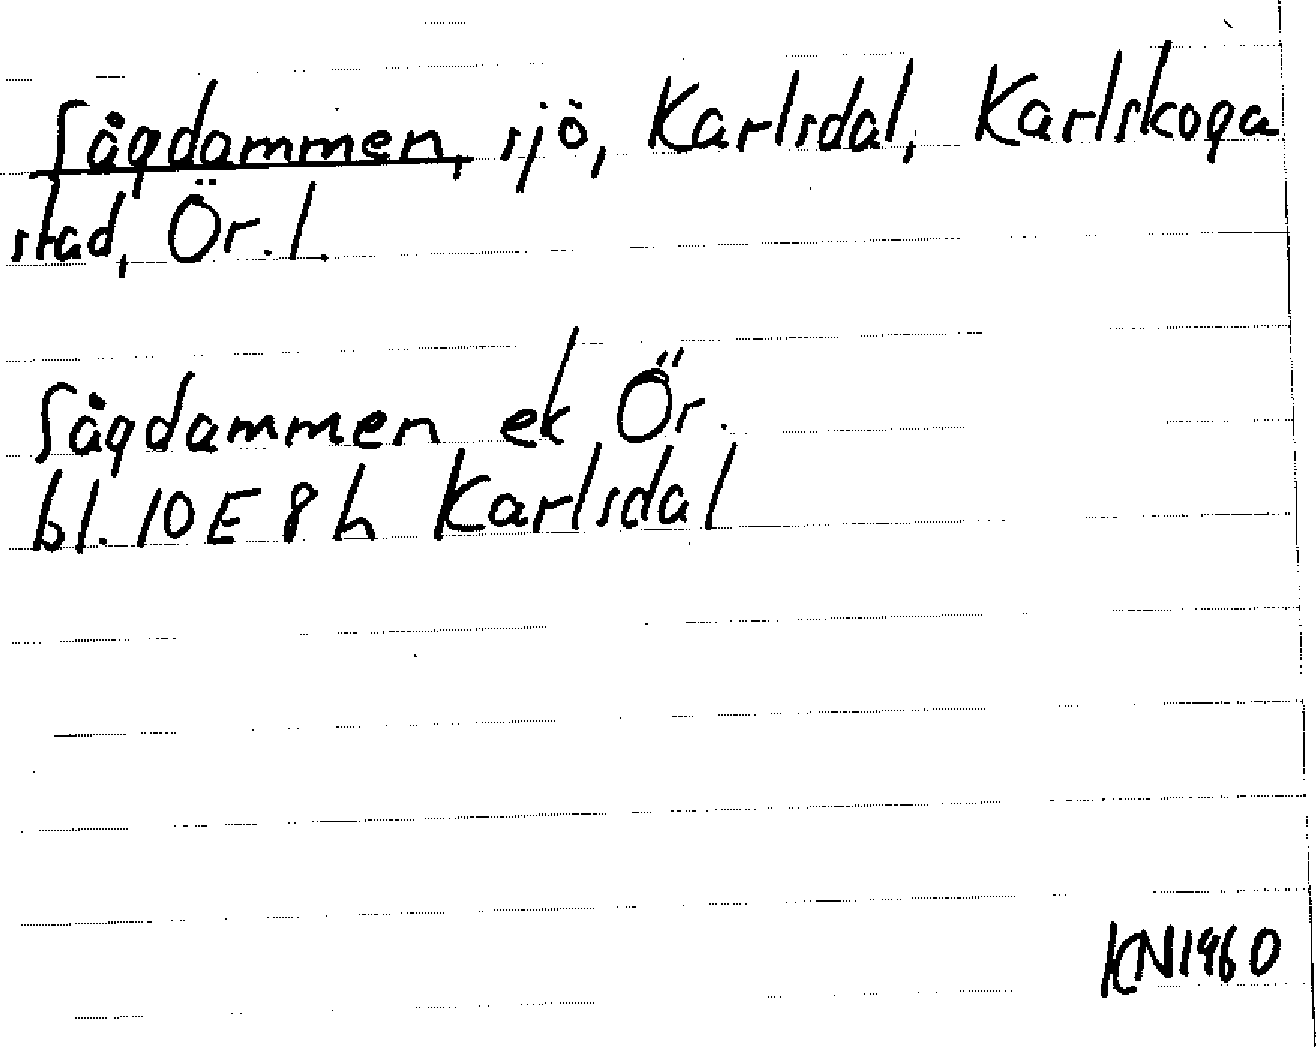 Sågdammen, sjö, Karlsdal, Karlskoga
stad, Ör. l.
Sågdammen ek Ör.
bl. 10E 8h Karlsdal
KN1960